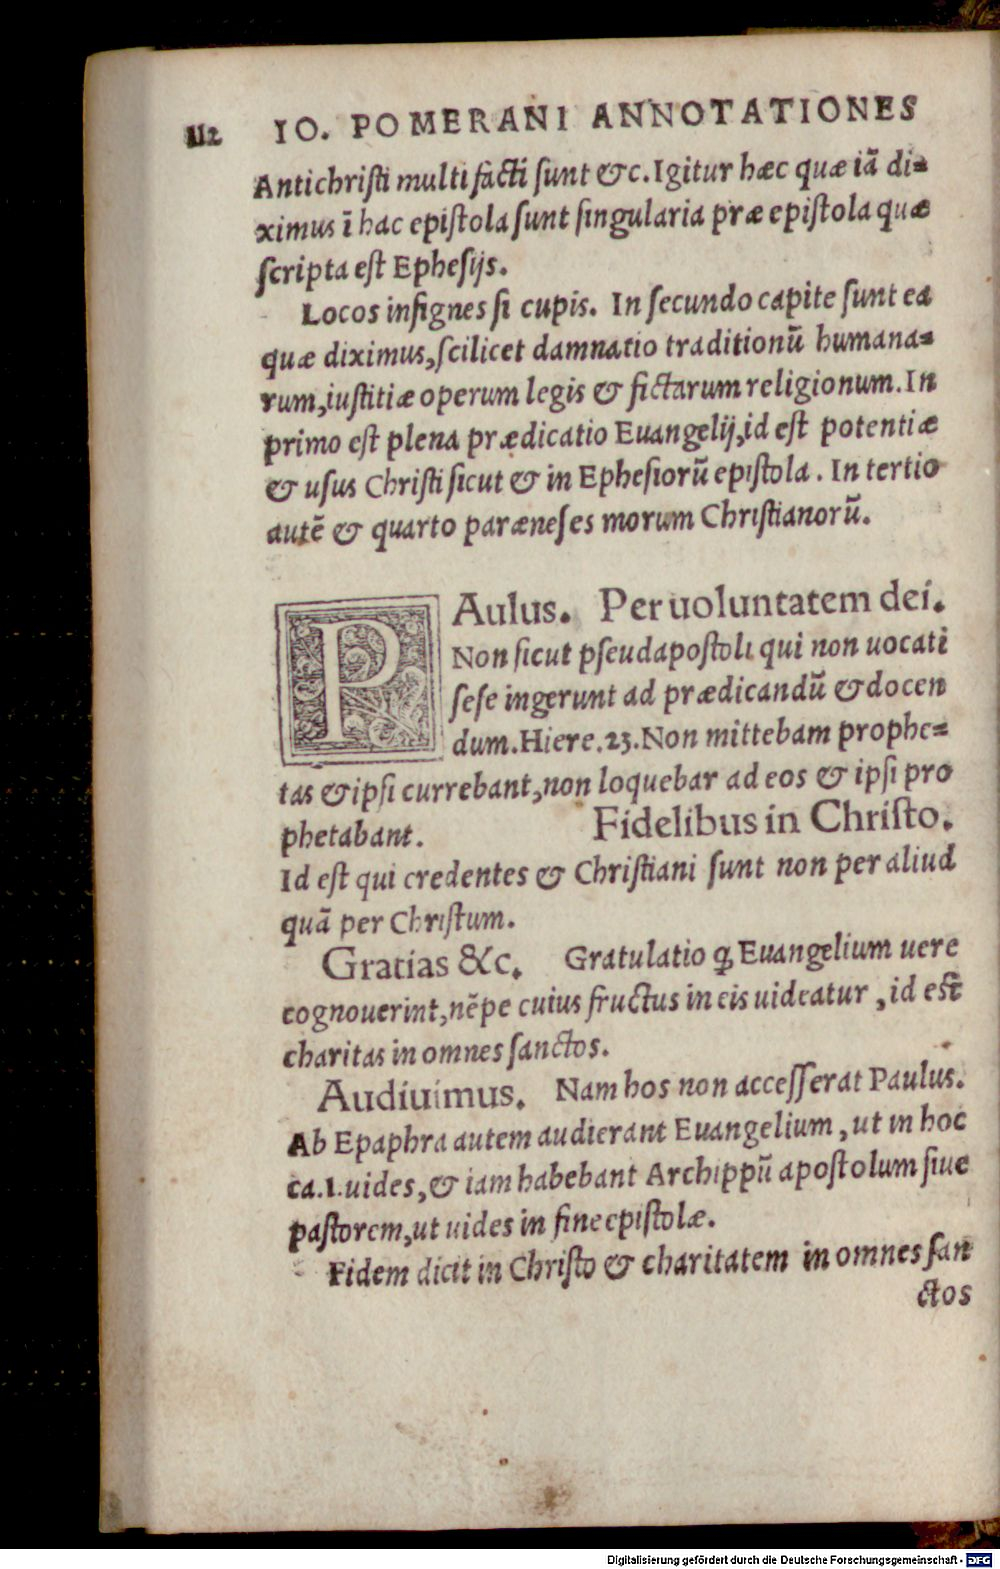 112 IO. POMERANI ANNOTATIONES
Antichriſti multi facti ſunt &c. Igitur hæc quæ iã di-
ximus ī hac epiſtola ſunt ſingularia præ epiſtola quæ
ſcripta eſt Epheſijs.
Locos inſignes ſi cupis. In ſecundo capite ſunt ea
quæ diximus, ſcilicet damnatio traditionũ humana-
rum, iuſtitiæ operum legis & fictarum religionum. In
primo eſt plena prædicatio Euangelij, id eſt potentiæ
& uſus Chriſti ſicut & in Epheſiorũ epiſtola. In tertio
autẽ & quarto paræneſes morum Chriſtianorũ.
PAulus. Per uoluntatem dei.
Non ſicut pſeudapoſtoli qui non uocati
ſeſe ingerunt ad prædicandũ & docen
dum. Hiere. 23. Non mittebam prophe-
tas & ipſi currebant, non loquebar ad eos & ipſi pro
phetabant. Fidelibus in Chriſto.
Id eſt qui credentes & Chriſtiani ſunt non per aliud
quã per Chriſtum.
Gratias &c. Gratulatio ꝙ Euangelium uere
cognouerint, nẽpe cuius fructus in eis uideatur, id eſt
charitas in omnes ſanctos.
Audiuimus. Nam hos non acceſſerat Paulus.
Ab Epaphra autem audierant Euangelium, ut in hoc
ca. 1. uides, & iam habebant Archippũ apoſtolum ſiue
paſtorem, ut uides in fine epiſtolæ.
Fidem dicit in Chriſto & charitatem in omnes ſan
ctos
Digitalisierung gefördert durch die Deutsche Forschungsgemeinschaft - DFG